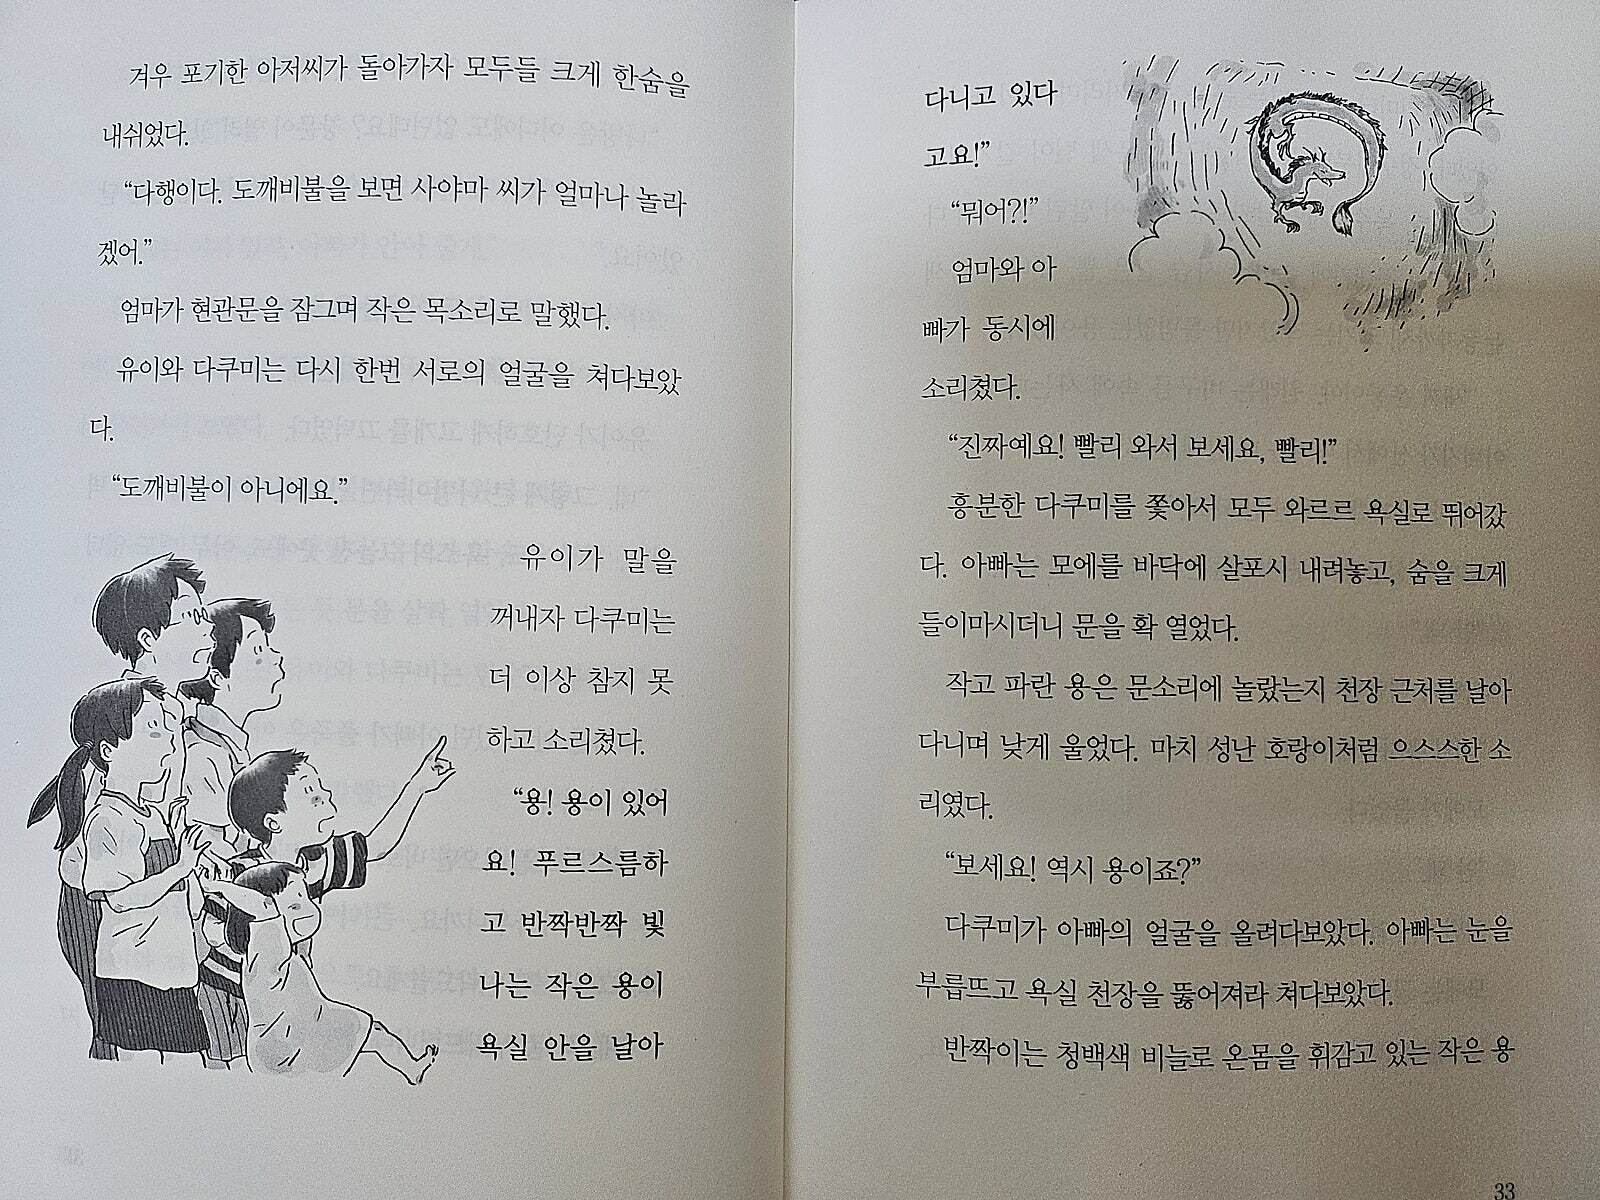 겨우 포기한 아저씨가 돌아가자 모두들 크게 한숨을
내쉬었다.
“다행이다. 도깨비불을 보면 사야마 씨가 얼마나 놀라
겠어.”
엄마가 현관문을 잠그며 작은 목소리로 말했다.
유이와 다쿠미는 다시 한번 서로의 얼굴을 쳐다보았
다.
“도깨비불이 아니에요.”
유이가 말을
꺼내자 다쿠미는
더 이상 참지 못
하고 소리쳤다.
“용! 용이 있어
요! 푸르스름하
고 반짝반짝 빛
나는 작은 용이
욕실 안을 날아
다니고 있다
고요!”
“뭐어?!”
엄마와 아
빠가 동시에
소리쳤다.
“진짜예요! 빨리 와서 보세요, 빨리!”
흥분한 다쿠미를 쫓아서 모두 와르르 욕실로 뛰어갔
다. 아빠는 모에를 바닥에 살포시 내려놓고, 숨을 크게
들이마시더니 문을 확 열었다.
작고 파란 용은 문소리에 놀랐는지 천장 근처를 날아
다니며 낮게 울었다. 마치 성난 호랑이처럼 으스스한 소
리였다.
“보세요! 역시 용이죠?”
다쿠미가 아빠의 얼굴을 올려다보았다. 아빠는 눈을
부릅뜨고 욕실 천장을 뚫어져라 쳐다보았다.
반짝이는 청백색 비늘로 온몸을 휘감고 있는 작은 용
33